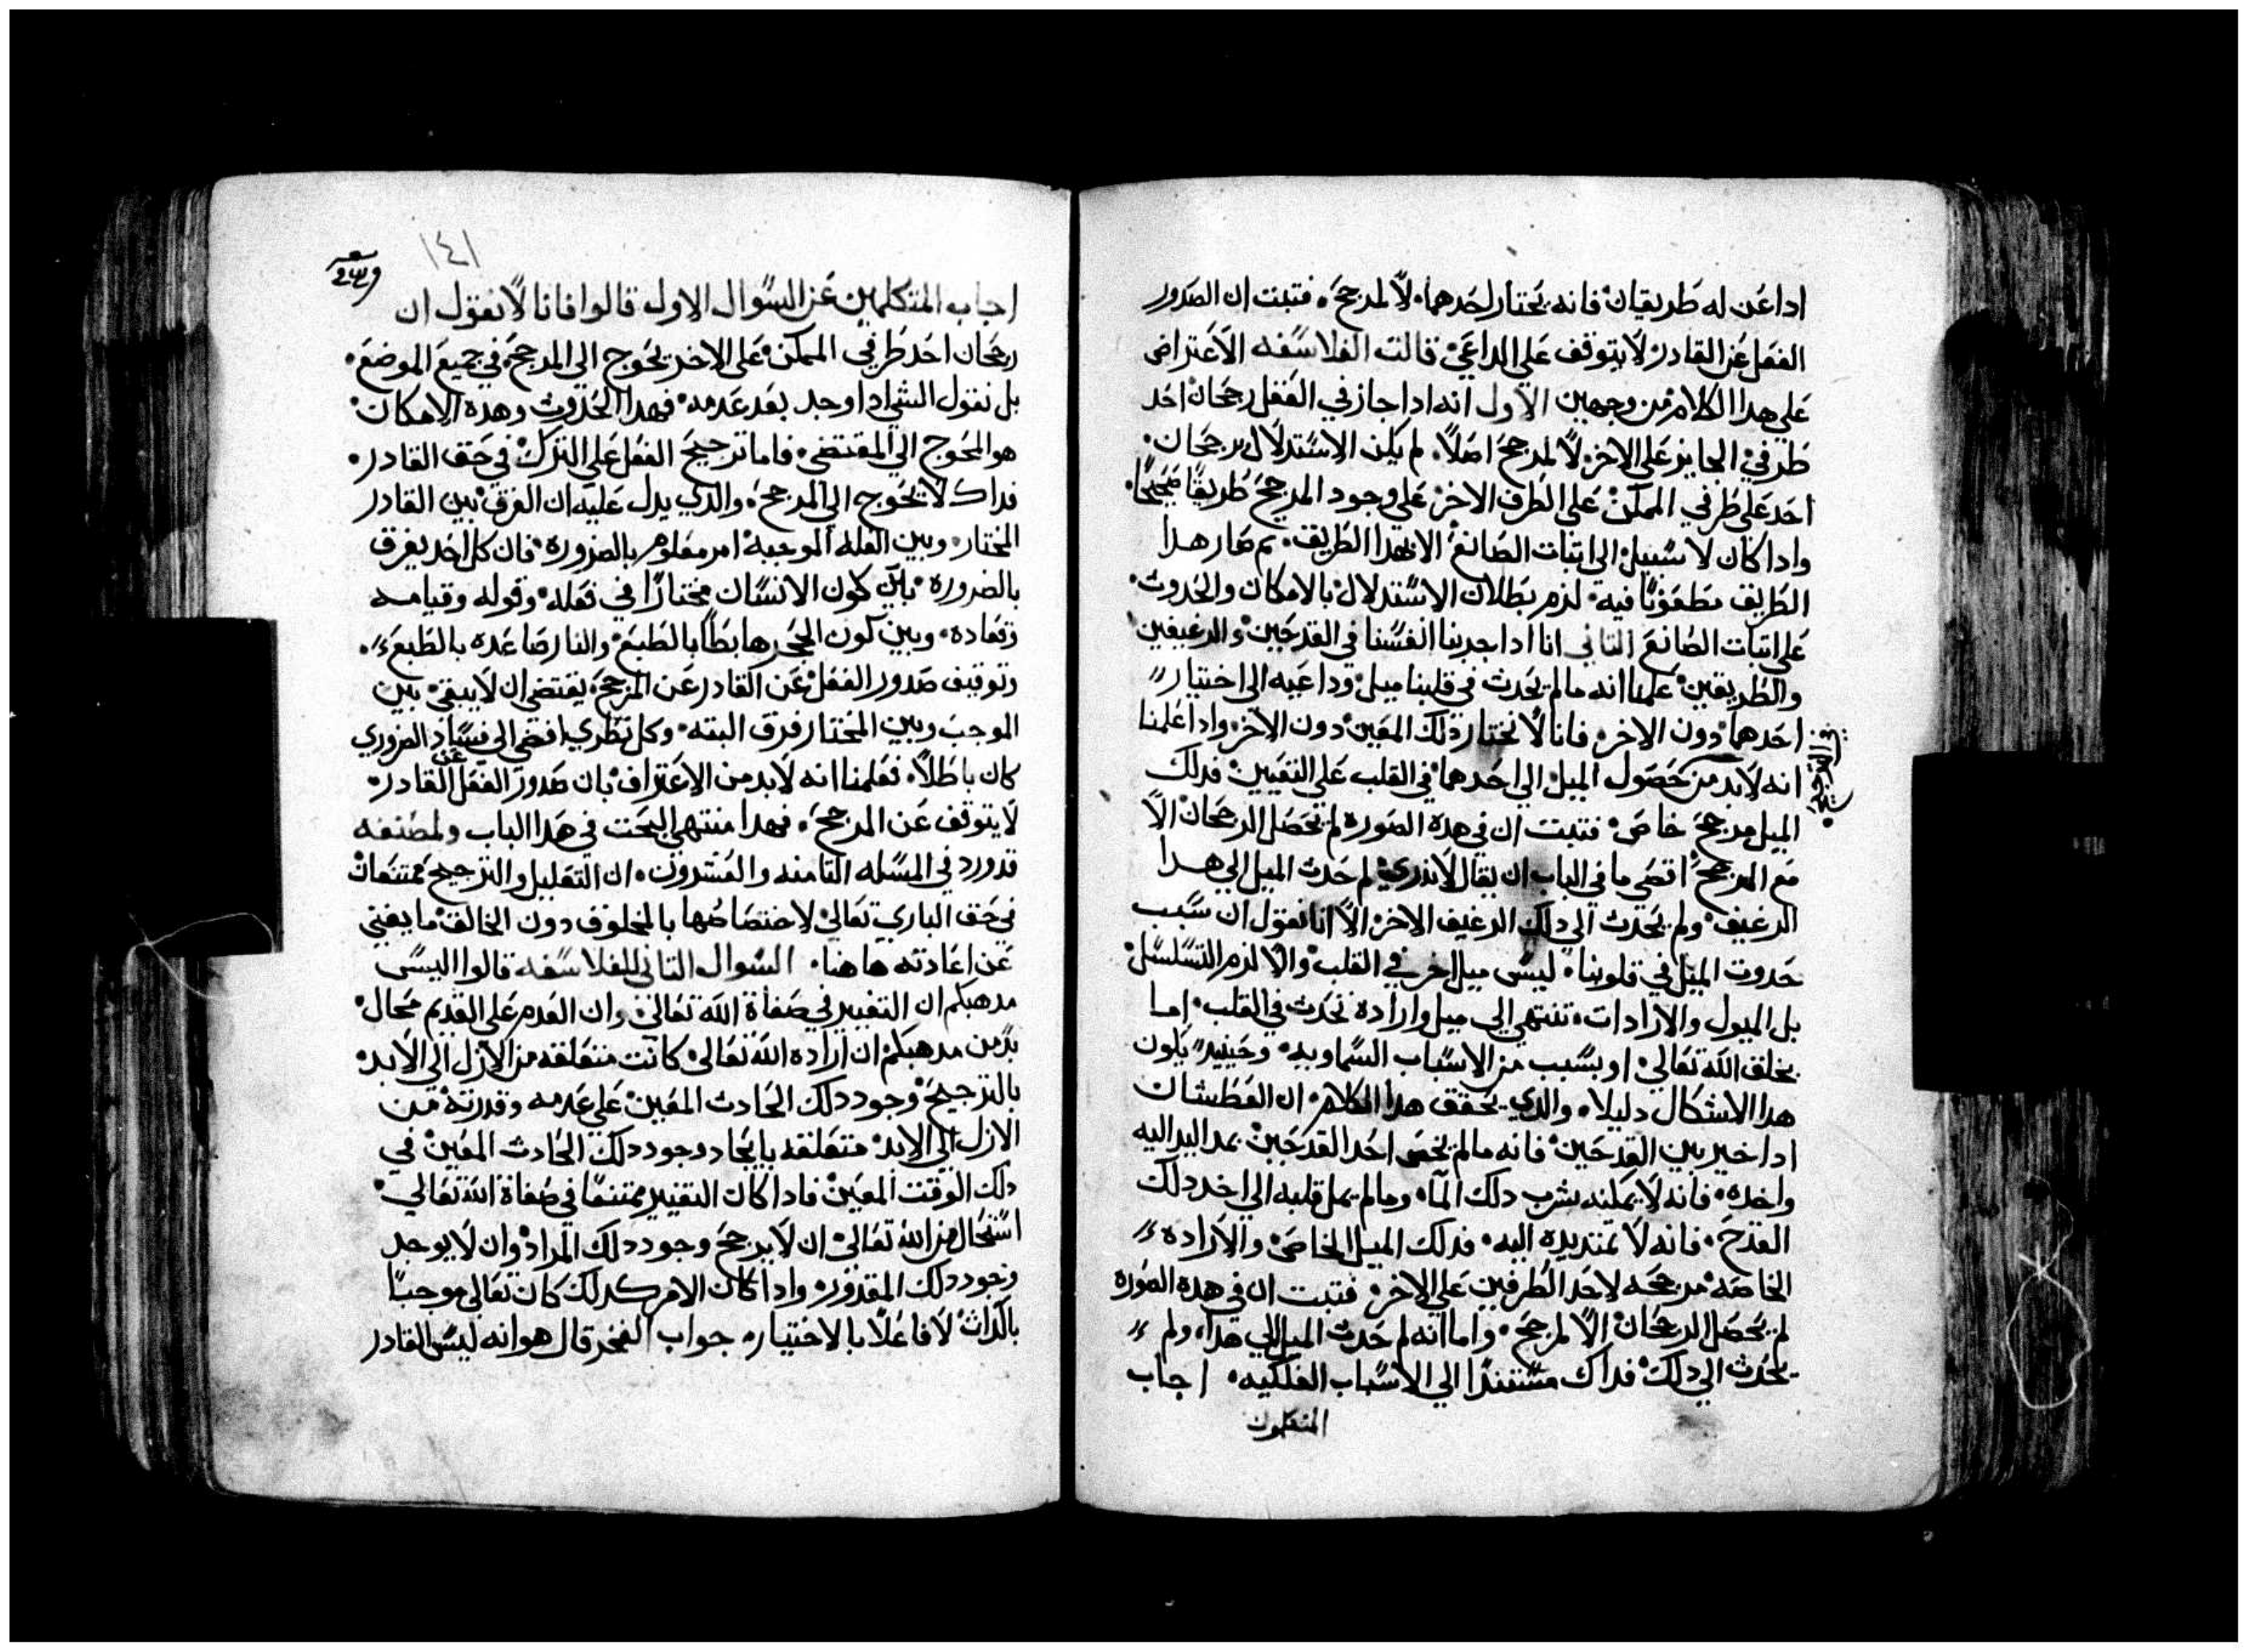 اداعن له طريقان فانه يختار احدهما لا لمرجح فتبت ان الصدور
الفعل عن القادر لا يتوقف علي الداعي قالت الفلاسفه الاعتراض
علي هدا الكلام من وجهين الاول انه ادا جاز في الفعل رجحان احد
طرفي الجايز علي الاخر لا لمرجح اصلا لم يكن الاستدلال برجحان
احد علي طرفي الممكن علي الطرف الاخر علي وجود المرجح طريقا صحيحا
وادا كان لا سبيل الي اتبات الصانع الا بهدا الطريق تم صار هدا
الطريق مطعونا فيه لزم بطلان الاستدلال بالامكان والحدوت
علي اتبات الصانع التاني انا ادا جربنا انفسنا في القدحين والرغيفين
والطريقين علمنا انه ما لم يحدت في قلبنا ميل وداعيه الي اختيار
احدهما دون الاخر فانا لا نختار دلك المعين دون الاخر وادا علمنا
انه لابد من حصول الميل الي احدهما في القلب علي التعيين فدلك
الميل مرجح خاص فتبت ان في هده الصوره لم يحصل الرجحان الا
مع المرجح اقصي ما في الباب ان يقال لا ندري لم حدت الميل الي هدا
الرغيف ولم يحدت الي دلك الرغيف الاخر الا انا نقول ان سبب
حدوت الميل في قلوبنا ليس ميل اخر في القلب والا لزم التسلسل
بل الميول والارادات تنتهي الي ميل وارادة تحدت في القلب اما
بخلق الله تعالي او بسبب من الاسباب السماويه وحينيد يكون
هدا الاشكال دليلا والدي يحقق هدا الكلام ان العطشان
ادا خير بين القدحين فانه ما لم يخص احد القدحين بمد اليد اليه
واخده فانه لا يمكنه شرب دلك الما وما لم يمل قلبه الي اخد دلك
القدح فانه لا تمتد يده اليه فدلك الميل الخاص والاراده
الخاصه مرجحه لاحد الطرفين علي الاخر فتبت ان في هده الصوره
لم يحصل الرجحان الا لمرجح واما انه لم حدت الميل الي هدا ولم
يحدت الي دلك فداك مستندا الي الاسباب الفلكيه اجاب
المتكلمون
١٤١
اجابه المتكلمين عن السوال الاول قالوا فانا لا نقول ان
رجحان احد طرفي الممكن علي الاخر يحوج الي المرجح في جميع الموضع
بل نقول الشي ادا وجد بعد عدمه فهدا الحدوت وهده الامكان
هو المحوج الي المقتضي فاما ترجيح الفعل علي الترك في حق القادر
فداك لا يحوج الي المرجح والدي يدل عليه ان الفرق بين القادر
المختار وبين العله الموجبه امر معلوم بالضروره فان كل احد يفرق
بالضروره بين كون الانسان مختارا في فعله وقوله وقيامه
وقعاده وبين كون الحجر هابطا بالطبع والنار صاعده بالطبع
وتوقيف صدور الفعل عن القادر عن المرجح يقتضي ان لا يبقي بين
الموجب وبين المختار فرق البته وكل نظري افضي الي فساد الضروري
كان باطلا فعلمنا انه لابد من الاعتراف بان صدور الفعل عن القادر
لا يتوقف عن المرجح فهدا منتهي البحت في هدا الباب ولمصنفه
قد ورد في المسله التامنه والعشرون ان التعليل والترجيح ممتنعات
في حق الباري تعالي لاختصاصها بالمخلوق دون الخالق ما يغني
عن اعادته هاهنا السوال التاني للفلاسفه قالوا اليس
مدهبكم ان التغيير في صفاة الله تعالي وان العدم علي القديم محال
من مدهبكم ان ارادة الله تعالي كانت متعلقه من الازل الي الابد
بالترجيح وجود دلك الحادت المعين علي عدمه وقدرته من
الازل الي الابد متعلقه بايجاد وجود دلك الحادت المعين في
دلك الوقت المعين فادا كان التغيير ممتنعا في صفاة الله تعالي
استحال من الله تعالي ان لا يرجح وجود دلك المراد وان لا يوجد
وجود دلك المقدور وادا كان الامر كدلك كان تعالي موجبا
بالدات لا فاعلا بالاختيار جواب الفخر قال هو انه ليس القادر